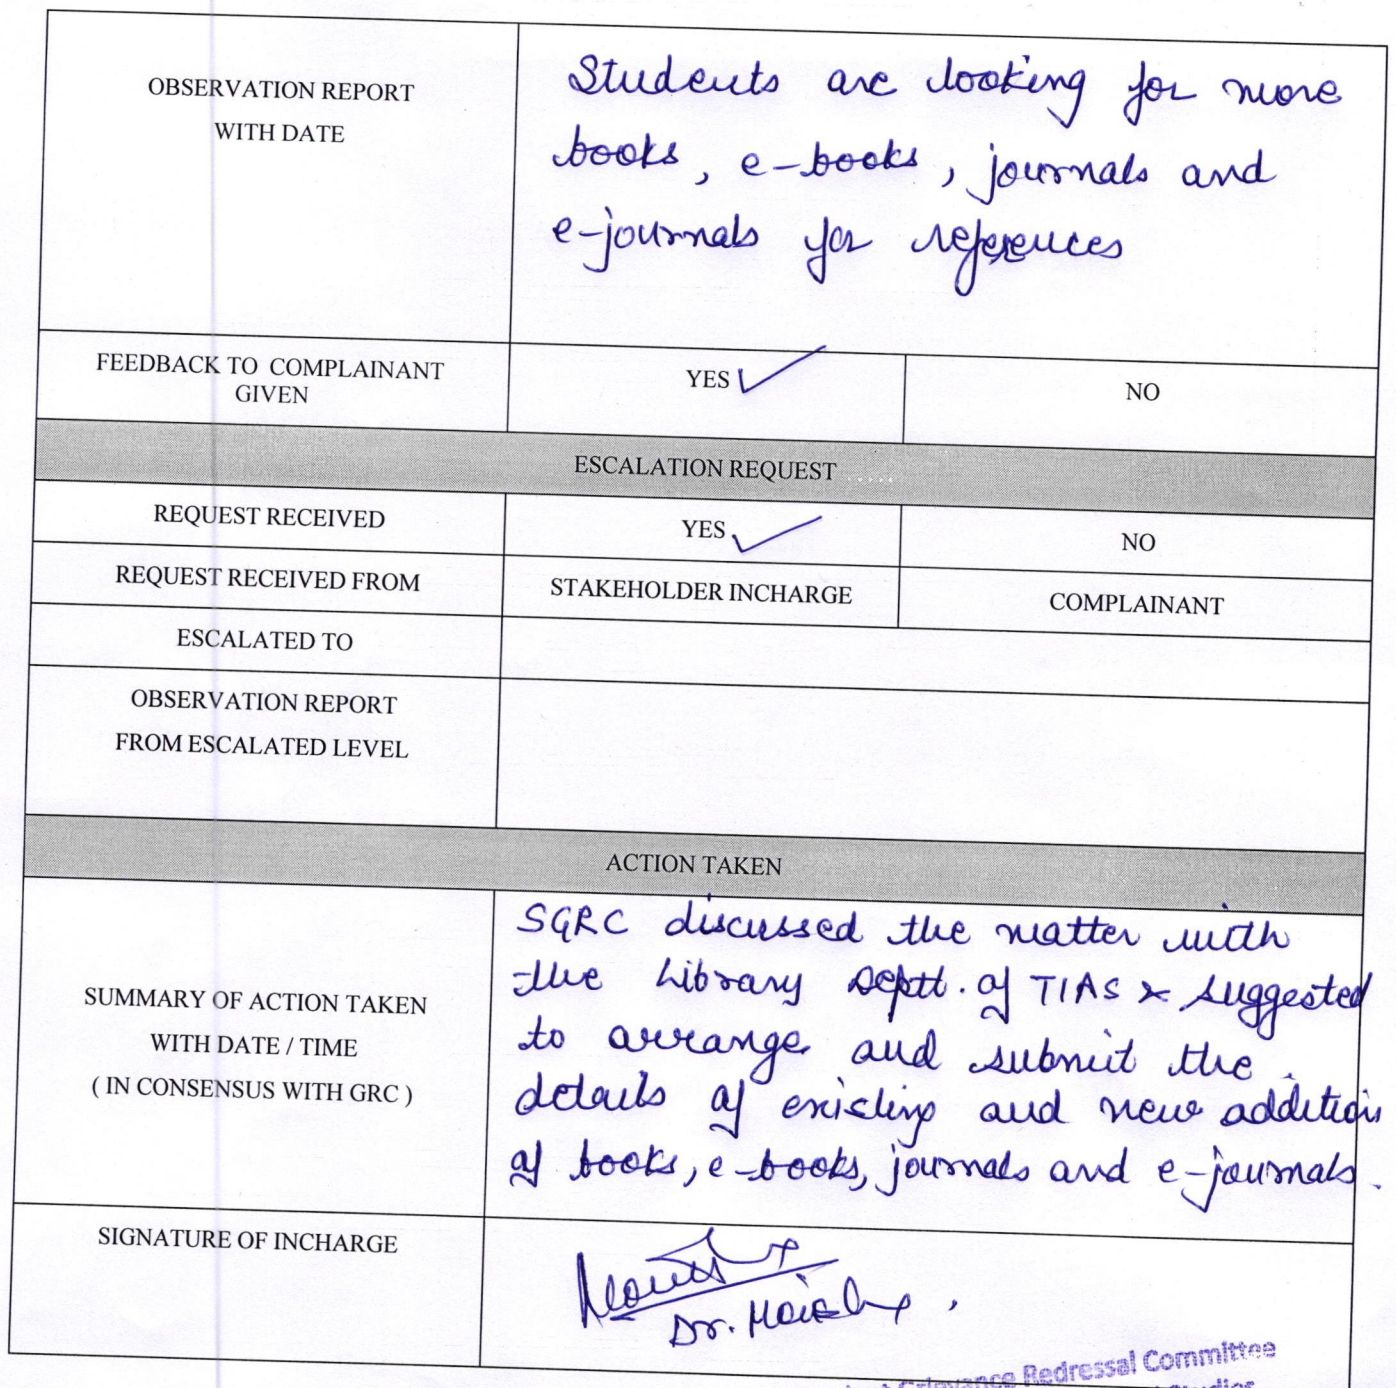 OBSERVATION REPORT
WITH DATE
Students are looking for more
books, e-books, journals and
e-journals for references
FEEDBACK TO COMPLAINANT
GIVEN
YES ✓
NO
ESCALATION REQUEST
REQUEST RECEIVED
YES ✓
NO
REQUEST RECEIVED FROM
STAKEHOLDER INCHARGE
COMPLAINANT
ESCALATED TO
OBSERVATION REPORT
FROM ESCALATED LEVEL
ACTION TAKEN
SUMMARY OF ACTION TAKEN
WITH DATE / TIME
( IN CONSENSUS WITH GRC )
SGRC discussed the matter with
the Library Deptt. of TIAS & suggested
to arrange and submit the
details of existing and new addition
of books, e-books, journals and e-journals.
SIGNATURE OF INCHARGE
Dr.
Grievance Redressal Committee
Studies